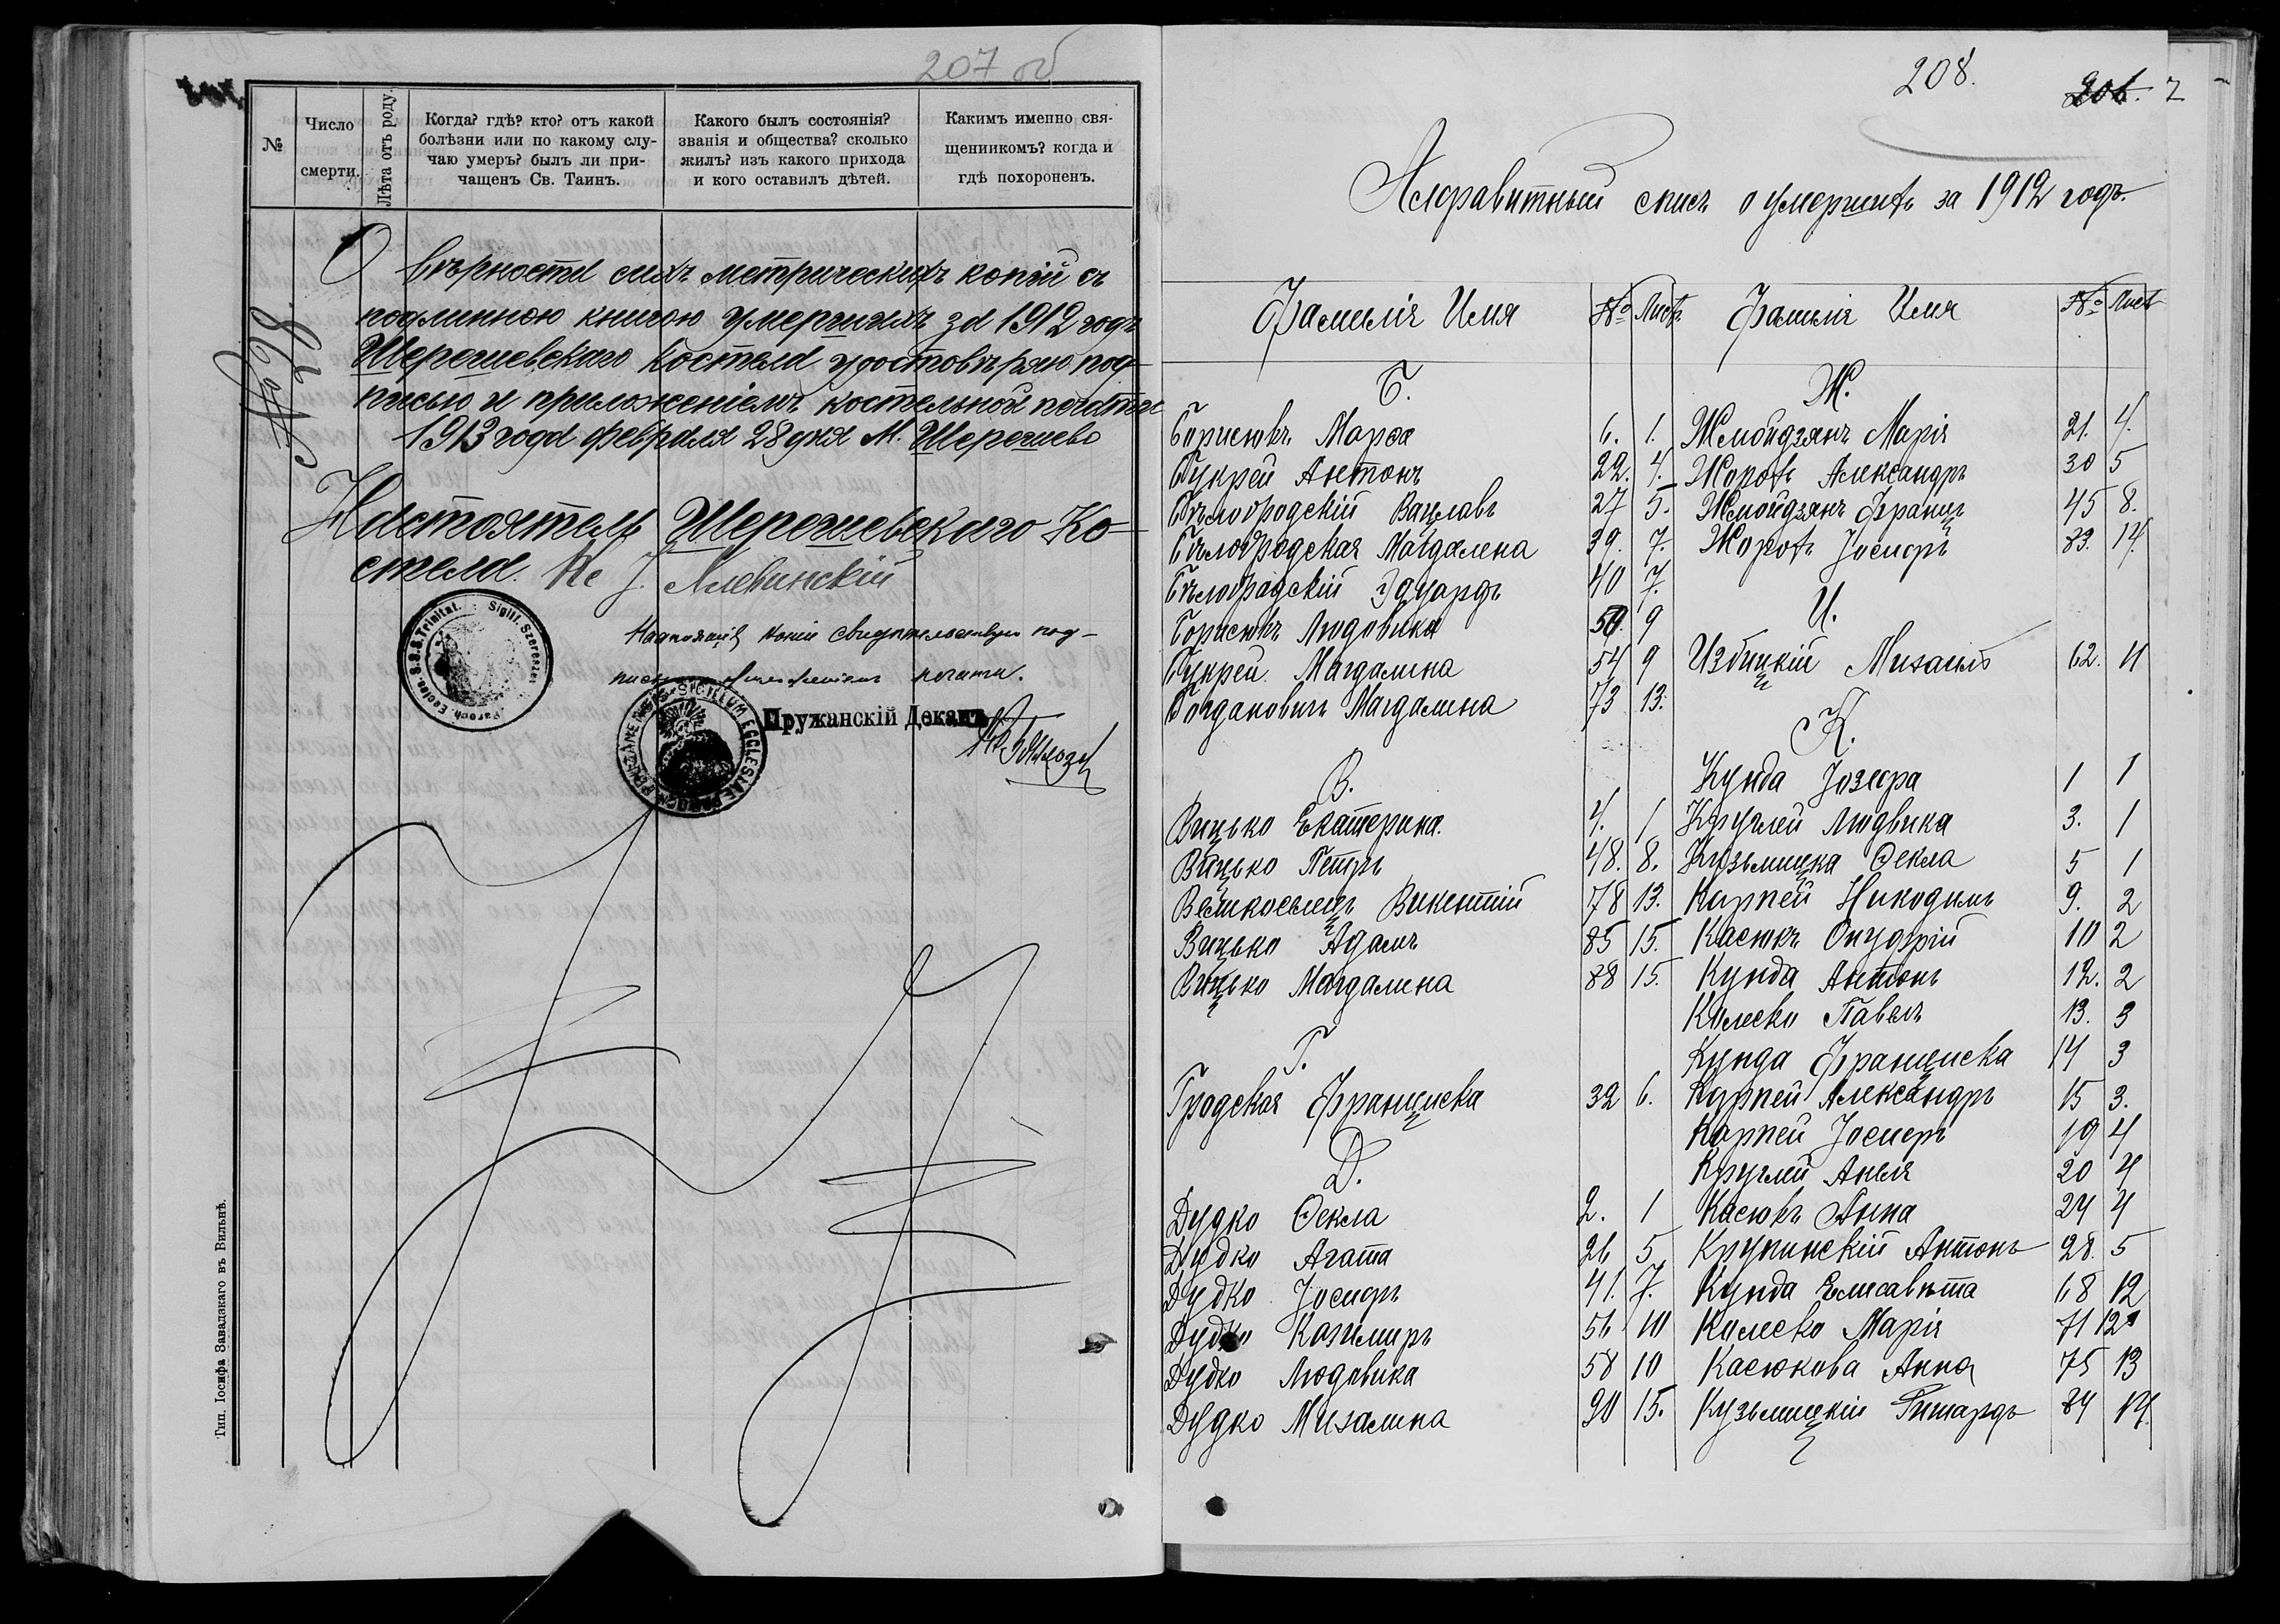 207 об
№
Число смерти.
Лѣта отъ роду.
Когда? гдѣ? кто? отъ какой болѣзни или по какому случаю умеръ? былъ ли причащенъ Св. Таинъ.
Какого былъ состоянія? званія и общества? сколько жилъ? изъ какого прихода и кого оставилъ дѣтей.
Какимъ именно священникомъ? когда и гдѣ похороненъ.
О вѣрности сихъ метрическихъ копій съ
подлинною книгою умершихъ за 1912 годъ
Шерешевскаго костела удостовѣряю под-
писью и приложеніемъ костельной печати
1913 года февраля 28 дня М. Шерешево
Настоятель Шерешевскаго Ко-
стела. Кс J.
Пружанскій Деканъ
Тип. Іосифа Завадзкаго въ Вильнѣ.
208.
Алфавитный списъ о умершихъ за 1912 годъ.
Фамилія Имя № Листъ Фамилія Имя № Лист
Б.
Борисюкъ Марѳа 6. 1.
Букрей Антонъ 22. 4.
Бѣлобродскій Вацлавъ 27 5.
Бѣлобродская Магдалена 39. 7.
Бѣлобродскій Эдуардъ 40 7.
Борисюкъ Людовика 50. 9
Букрей Магдалина 54 9
Богдановичъ Магдалина 73 13.
В.
Вицько Екатерина. 4. 1
Вицько Петръ 48. 8.
Великоселецъ Викентій 78 13.
Вицько Адамъ 85 15.
Вицько Магдалина 88 15.
Г.
Гродская Францишка 32 6.
Д.
Дудко Ѳекла 2. 1
Дудко Агата 26 5.
Дудко Іосифъ 41. 7.
Дудко Казимиръ 56 10
Дудко Людовика 58 10
Дудко Михалина 90 15.
Ж.
Жмойдзянъ Марія 21. 4.
Жоровъ Александръ 30 5
Жмойдзянъ Францъ 45 8.
Жоровъ Іосифъ 83. 14.
И.
Избицкій Михаилъ 62. 11
К.
Кунда Іозефа 1 1
Круглей Людвика 3. 1
Кузьмицка Ѳекла 5 1
Карпей Никодимъ 9. 2
Касюкъ Онуфрій 10 2
Кунда Антонъ 12. 2
Колеско Павелъ 13. 3
Кунда Францишка 14 3
Карпей Александръ 15 3.
Карпей Іосифъ 19 4
Круглей Анеля 20 4
Касюкъ Анна 24 4
Крупинскій Антонъ 28. 5
Кунда Елисавѣта 68 12
Колеско Марія 71 12
Касюкова Анна 75 13
Кузьмицкій Ришардъ 84 14.